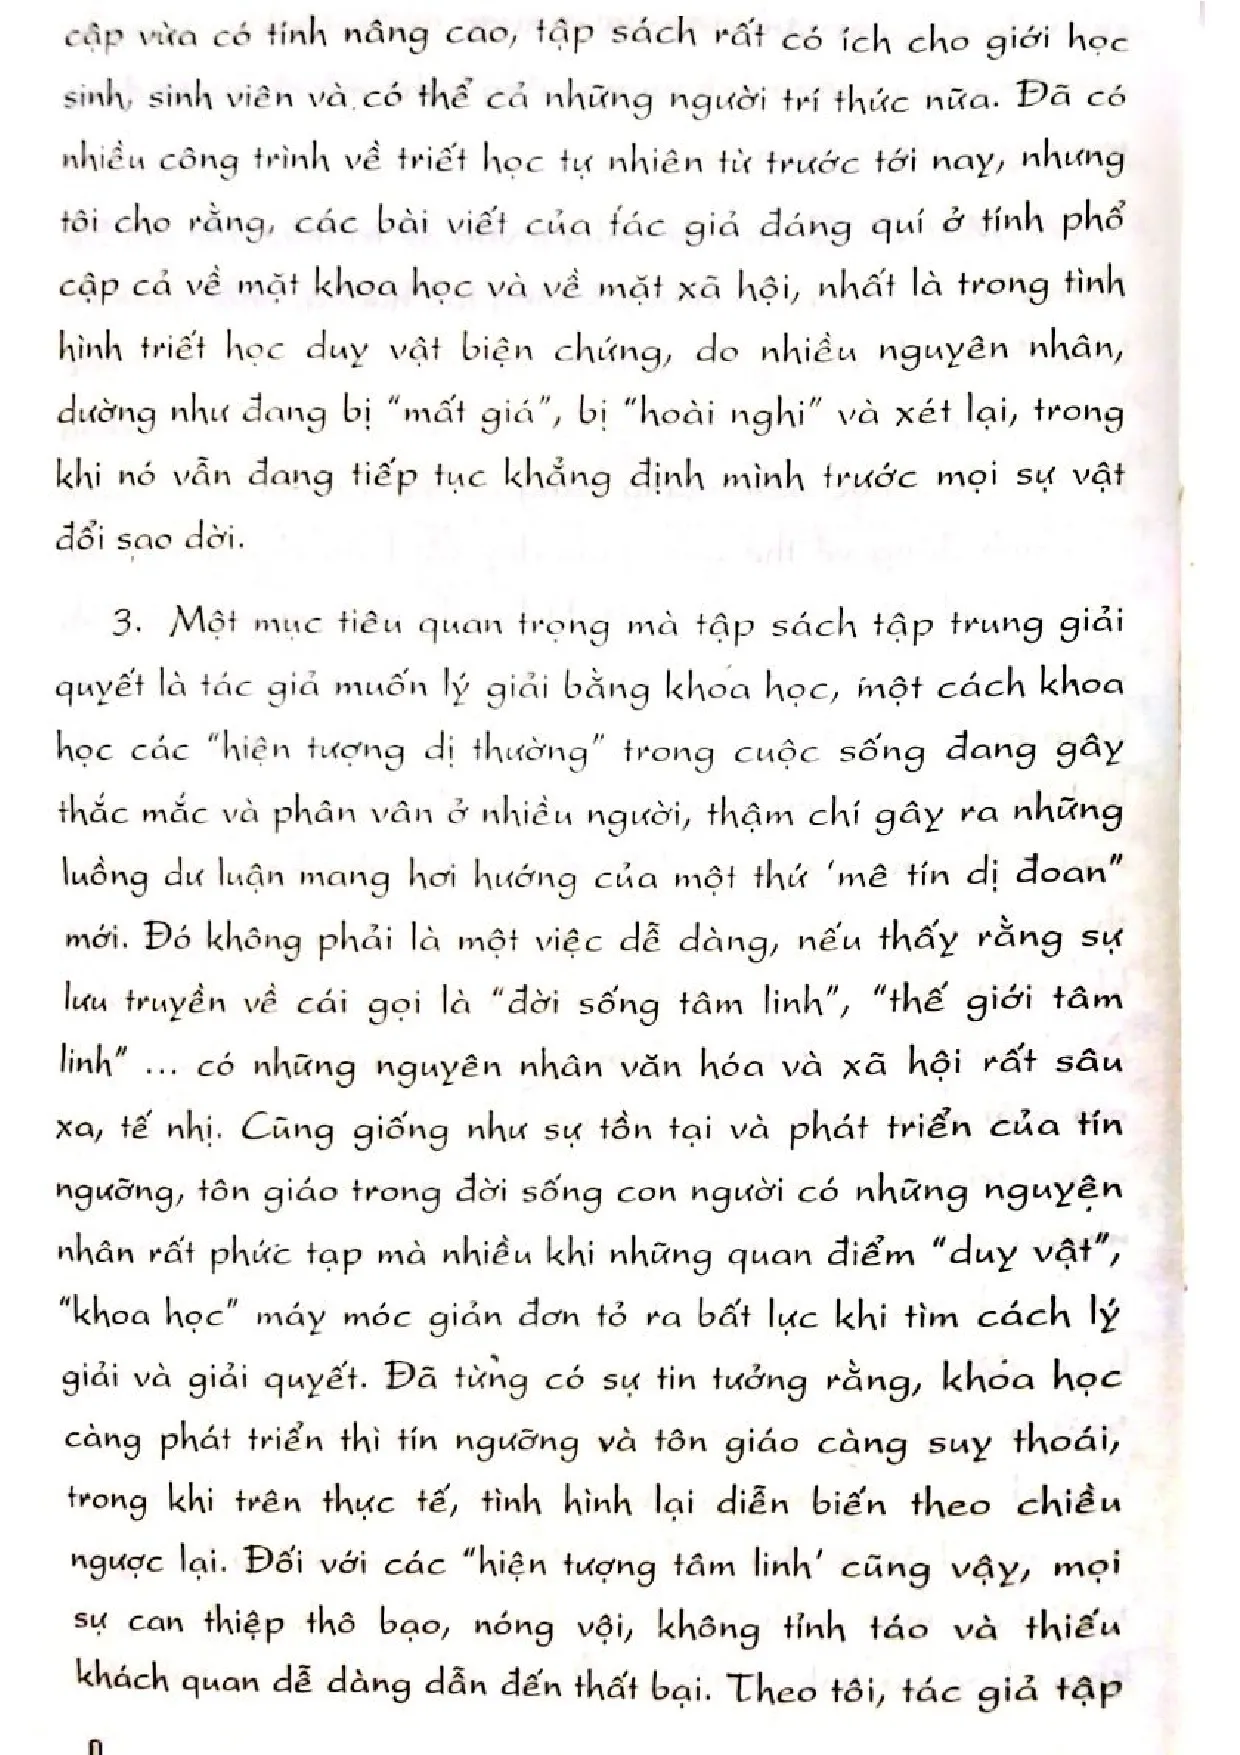 cập vừa có tính nâng cao, tập sách rất có ích cho giới học
sinh, sinh viên và có thể cả những người trí thức nữa. Đã có
nhiều công trình về triết học tự nhiên từ trước tới nay, nhưng
tôi cho rằng, các bài viết của tác giả đáng quí ở tính phổ
cập cả về mặt khoa học và về mặt xã hội, nhất là trong tình
hình triết học duy vật biện chứng, do nhiều nguyên nhân,
dường như đang bị “mất giá”, bị “hoài nghi” và xét lại, trong
khi nó vẫn đang tiếp tục khẳng định mình trước mọi sự vật
đổi sao dời.
3. Một mục tiêu quan trọng mà tập sách tập trung giải
quyết là tác giả muốn lý giải bằng khoa học, một cách khoa
học các “hiện tượng dị thường” trong cuộc sống đang gây
thắc mắc và phân vân ở nhiều người, thậm chí gây ra những
luồng dư luận mang hơi hướng của một thứ ‘mê tín dị đoan”
mới. Đó không phải là một việc dễ dàng, nếu thấy rằng sự
lưu truyền về cái gọi là “đời sống tâm linh”, “thế giới tâm
linh” ... có những nguyên nhân văn hóa và xã hội rất sâu
xa, tế nhị. Cũng giống như sự tồn tại và phát triển của tín
ngưỡng, tôn giáo trong đời sống con người có những nguyện
nhân rất phức tạp mà nhiều khi những quan điểm “duy vật”,
“khoa học” máy móc giản đơn tỏ ra bất lực khi tìm cách lý
giải và giải quyết. Đã từng có sự tin tưởng rằng, khoa học
càng phát triển thì tín ngưỡng và tôn giáo càng suy thoái,
trong khi trên thực tế, tình hình lại diễn biến theo chiều
ngược lại. Đối với các “hiện tượng tâm linh’ cũng vậy, mọi
sự can thiệp thô bạo, nóng vội, không tỉnh táo và thiếu
khách quan dễ dàng dẫn đến thất bại. Theo tôi, tác giả tập